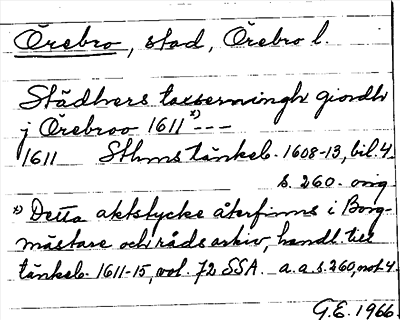 Örebro, stad, Örebro l.
Städhers taxserningh giordh
j Örebroo 1611 x) ---
1611 Sthms tänkeb. 1608-13, bil. 4
s. 260. orig.
x) Detta aktstycke återfinns i Borg-
mästare och råds arkiv, handl. till
tänkeb. 1611-15, vol. 72 SSA. a.a.s. 260, not 4.
G.E. 1966